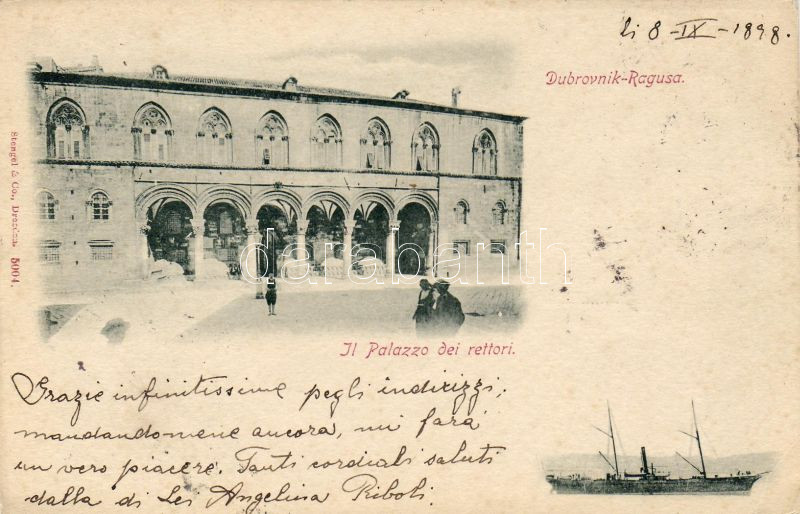 li 8-IX-1898.
Dubrovnik-Ragusa.
Stengel & Co., Dresden. 5004.
darabanth
Il Palazzo dei rettori.
Grazie infinitissime pegli indirizzi;
mandandomene ancora, mi fará
un vero piacere. Tanti cordiali saluti
dalla di Lei Angelina Riboli.